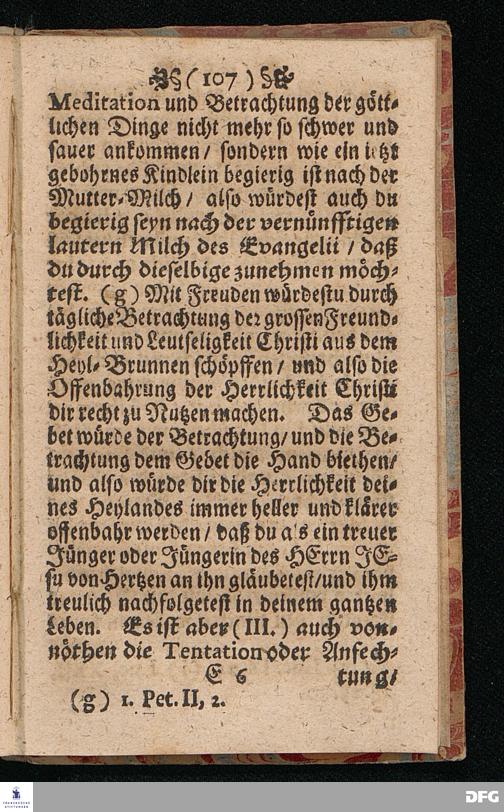 (107)
Meditation und Betrachtung der gött-
lichen Dinge nicht mehr so schwer und
sauer ankommen / sondern wie ein ietzt
gebohrnes Kindlein begierig ist nach der
Mutter-Milch / also würdest auch du
begierig seyn nach der vernünfftigen
lautern Milch des Evangelii / daß
du durch dieselbige zunehmen möch-
test. (g) Mit Freuden würdestu durch
tägliche Betrachtung der grossen Freund-
lichkeit und Leutseligkeit Christi aus dem
Heyl-Brunnen schöpffen / und also die
Offenbahrung der Herrlichkeit Christi
dir recht zu Nutzen machen. Das Ge-
bet würde der Betrachtung / und die Be-
trachtung dem Gebet die Hand biethen /
und also würde dir die Herrlichkeit dei-
nes Heylandes immer heller und klärer
offenbahr werden / daß du als ein treuer
Jünger oder Jüngerin des HErrn JE-
su von Hertzen an ihn gläubetest / und ihm
treulich nachfolgetest in deinem gantzen
Leben. Es ist aber (III.) auch von-
nöthen die Tentation oder Anfech-
E 6 tung /
(g) 1. Pet. II, 2.
FRANCKESCHE STIFTUNGEN
DFG